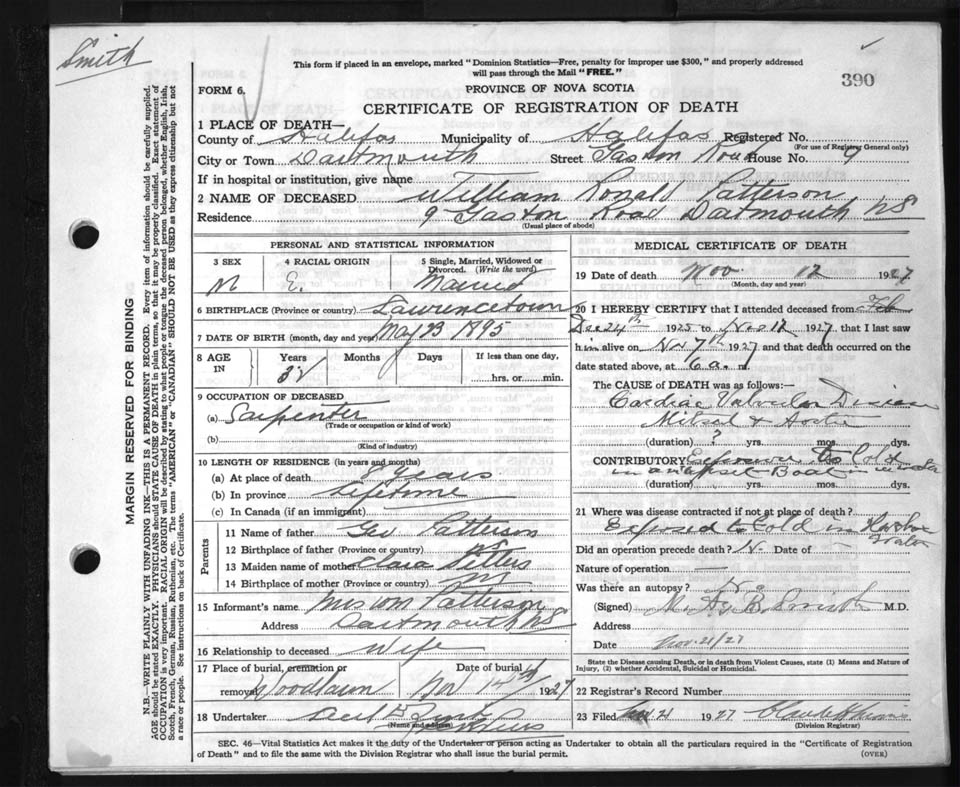 Smith
This form if placed in an envelope, marked "Dominion Statistics—Free, penalty for improper use $300," and properly addressed
will pass through the Mail "FREE."
390
FORM 6.
PROVINCE OF NOVA SCOTIA
CERTIFICATE OF REGISTRATION OF DEATH
1 PLACE OF DEATH—
County of Halifax Municipality of Halifax Registered No.
(For use of Registrar General only)
City or Town Dartmouth Street Gaston Road House No. 9
If in hospital or institution, give name
2 NAME OF DECEASED William Ronald Patterson
Residence 9 Gaston Road Dartmouth NS
(Usual place of abode)
PERSONAL AND STATISTICAL INFORMATION
3 SEX M
4 RACIAL ORIGIN E.
5 Single, Married, Widowed or
Divorced. (Write the word)
Married
6 BIRTHPLACE (Province or country) Lawrencetown
7 DATE OF BIRTH (month, day and year) May 1895
8 AGE IN Years 32 Months Days If less than one day,
hrs. or min.
9 OCCUPATION OF DECEASED
(a) Carpenter
(Trade or occupation or kind of work)
(b)
(Kind of industry)
10 LENGTH OF RESIDENCE (in years and months)
(a) At place of death 8 years
(b) In province Lifetime
(c) In Canada (if an immigrant)
Parents
11 Name of father Geo Patterson
12 Birthplace of father (Province or country) NS
13 Maiden name of mother Clara
14 Birthplace of mother (Province or country) NS
15 Informant's name Mrs Wm Patterson
Address Dartmouth NS
16 Relationship to deceased Wife
17 Place of burial, cremation or
removal Woodlawn
Date of burial
Nov 14th 1927
18 Undertaker
(Name and address)
MEDICAL CERTIFICATE OF DEATH
19 Date of death Nov. 12 1927
(Month, day and year)
20 I HEREBY CERTIFY that I attended deceased from Feb
Dec 24th 1925 to Nov 12 1927, that I last saw
him alive on Nov 7th 1927 and that death occurred on the
date stated above, at 6 a. m.
The CAUSE of DEATH was as follows:—
Cardiac Valvular Disease
Mitral & Aortic
(duration) ? yrs. mos. dys.
CONTRIBUTORY Exposure to Cold
in an upset Boat in water
(duration) yrs. mos. dys.
21 Where was disease contracted if not at place of death?
Exposed to Cold in Harbor
Water
Did an operation precede death? N. Date of —
Nature of operation —
Was there an autopsy? No
(Signed) B. Smith M.D.
Address
Date Nov. 21/27
State the Disease causing Death, or in death from Violent Causes, state (1) Means and Nature of
Injury, (2) whether Accidental, Suicidal or Homicidal.
22 Registrar's Record Number
23 Filed Nov 21 1927
(Division Registrar)
SEC. 46—Vital Statistics Act makes it the duty of the Undertaker or person acting as Undertaker to obtain all the particulars required in the "Certificate of Registration
of Death" and to file the same with the Division Registrar who shall issue the burial permit.
(OVER)
MARGIN RESERVED FOR BINDING
N.B.—WRITE PLAINLY WITH UNFADING INK—THIS IS A PERMANENT RECORD. Every item of information should be carefully supplied.
AGE should be stated EXACTLY. PHYSICIANS should STATE CAUSE OF DEATH in plain terms, so that it may be properly classified. Exact statement of
OCCUPATION is very important. RACIAL ORIGIN will be described by stating to what people or tongue the deceased person belonged, whether English, Irish,
Scotch, French, German, Russian, Ruthenian, etc. The terms "AMERICAN" or "CANADIAN" SHOULD NOT BE USED as they express citizenship but not
a race or people. See instructions on back of Certificate.